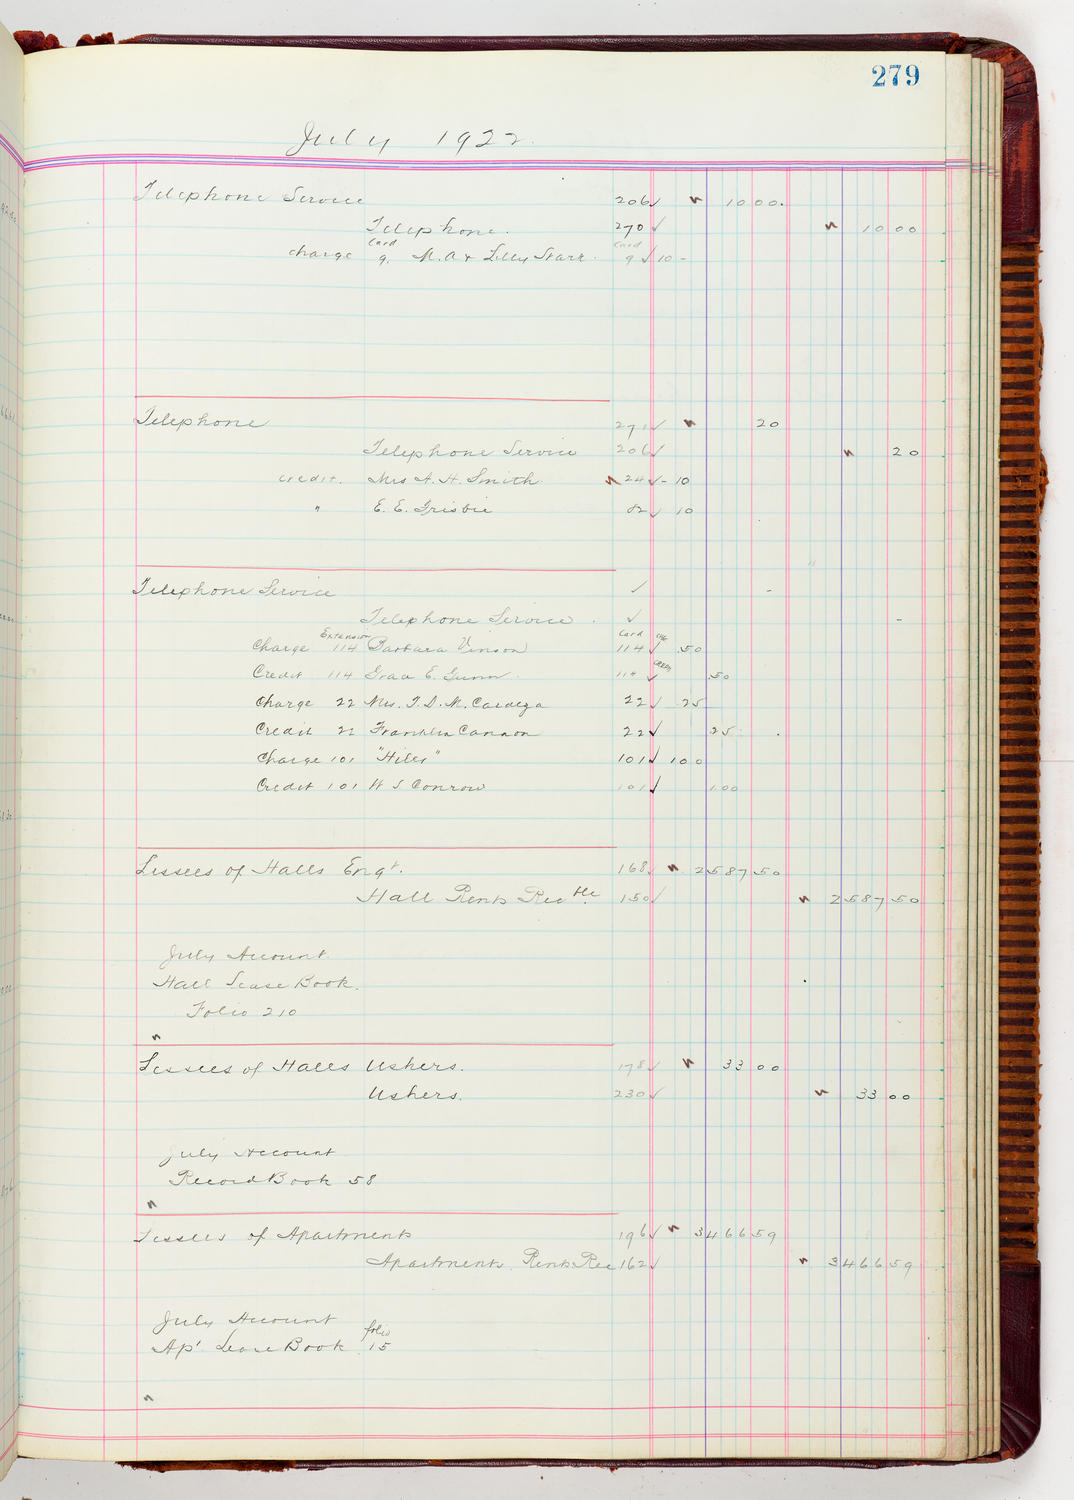 279
July 1922.
Telephone Service 206 ✓ 10 00.
Telephone. 270 ✓ 10 00
Card Card
charge 9. M. A & Lilly Starr. 9 ✓ 10 -
Telephone 271 ✓ 20
Telephone Service 206 ✓ 20
credit. Mrs A. H. Smith 24 ✓ - 10
" E. E. Frisbie 82 ✓ 10
Telephone Service ✓ -
Telephone Service. ✓ -
Extension Card
Charge 114 Barbara Vinson 114 ✓ .50
Credit 114 E. Gunn. 114 ✓ .50
Charge 22 Mrs. T. D. M. Cardeza 22 ✓ .25
Credit 22 Franklin Cannon 22 ✓ 25
Charge 101 "Hiles" 101 ✓ 1 00
Credit 101 H S Conrow 101 ✓ 1.00
Lessees of Halls Engt. 168 ✓ 2587 50
Hall Rents Recble 150 ✓ 2587 50
July Account.
Hall Lease Book.
Folio 210
Lessees of Halls Ushers. 178 ✓ 33 00
Ushers. 230 ✓ 33 00
July Account
Record Book 58
Lessees of Apartments 196 ✓ 3466 59
Apartments Rents Rec 162 ✓ 3466 59
July Account
folio
Apt Lease Book 15